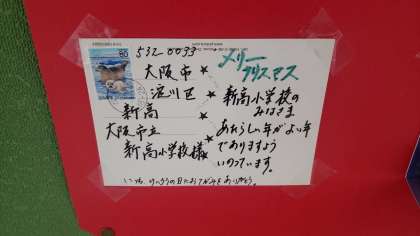 532-0033
大阪市
淀川区
新高
大阪市立
新高小学校様
メリー
クリスマス
新高小学校の
みなさま
あたらしい年がよい年
でありますよう
いのっています。
いつも、けいろうの日におてがみをありがとう。